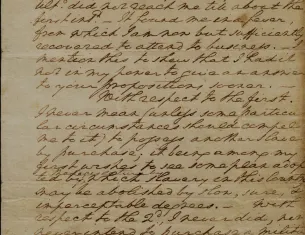 ult.º did not reach me till about the
first inst. – It found me in a fever,
from which I am now but sufficiently
recovered to attend to business. – I
mention this to shew that I had it
not in my power to give an answer
to your propositions sooner.
With respect to the first.
I never mean (unless some particu
lar circumstances should compel
me to it) to possess another slave
by purchase; it being among my
first wishes to see some plan adop
ted by which slavery in this Country
may be abolished by slow, sure, &
imperceptable degrees. – With
respect to the 2d, I never did, nor
never intend to purchase a milita